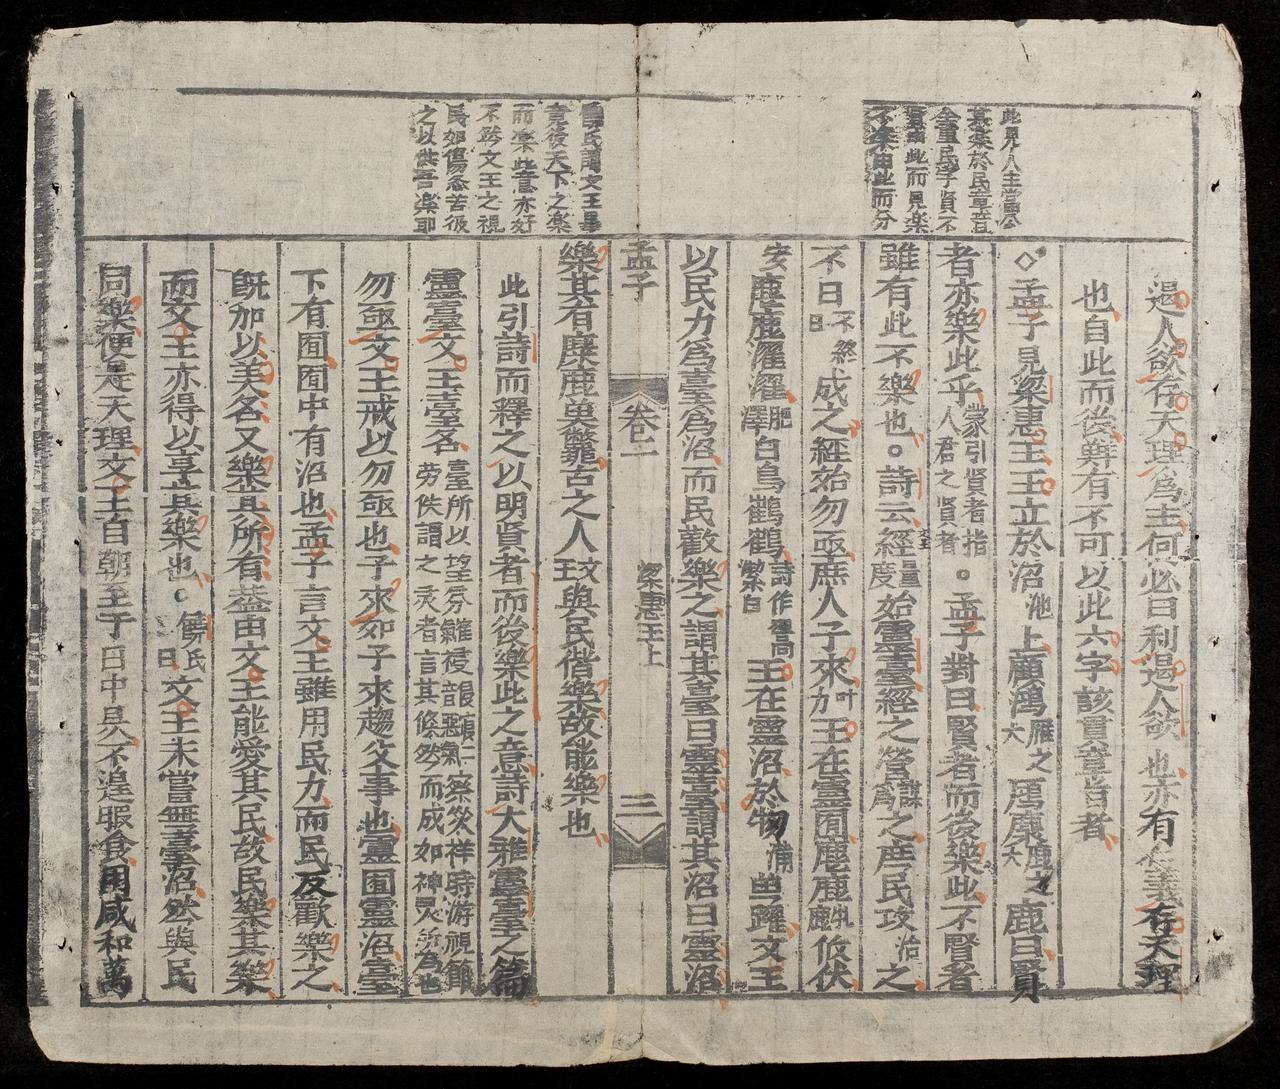 此見人主當公
其樂於民章旨
全重民字賢不
賢由此而見樂
不樂由此而分
遏人欲存天理爲主何必曰利遏人欲也亦有仁義存天理
也自此而後無有不可以此六字該貫章旨者
◇孟子見梁惠王王立於沼池上顧鴻雁之大鴈麋鹿之大鹿曰賢
者亦樂此乎蒙引賢者指人君之賢者○孟子對曰賢者而後樂此不賢者
雖有此不樂也○詩云文王經量度始靈臺經之營謀爲之庶民攻治之
不日不終日成之經始勿亟庶人子來叶力王在靈囿麀鹿牝鹿攸伏
安麀鹿濯濯肥澤白鳥鶴鶴詩作翯翯潔白王在靈沼於物滿魚躍文王
以民力爲臺爲沼而民歡樂之謂其臺曰靈臺謂其沼曰靈沼
孟子 卷一 梁惠王上 三
饒氏謂文王畢
竟後天下之樂
而樂此意亦好
不然文王之視
民如傷忍苦彼
之以供吾樂耶
樂其有麋鹿魚鼈古之人文王與民偕樂故能樂也
此引詩而釋之以明賢者而後樂此之意詩大雅靈臺之篇
靈臺文王臺名臺所以望氛祲察災祥時游觀節勞佚謂之灵者言其倐然而成如神灵所為也
勿亟文王戒以勿亟也子來如子來趨父事也靈囿靈沼臺
下有囿囿中有沼也孟子言文王雖用民力而民反歡樂之
旣加以美名又樂其所有蓋由文王能愛其民故民樂其樂
而文王亦得以享其樂也○饒氏曰文王未嘗無臺沼然與民
同樂便是天理文王自朝至于日中昃不遑暇食用咸和萬